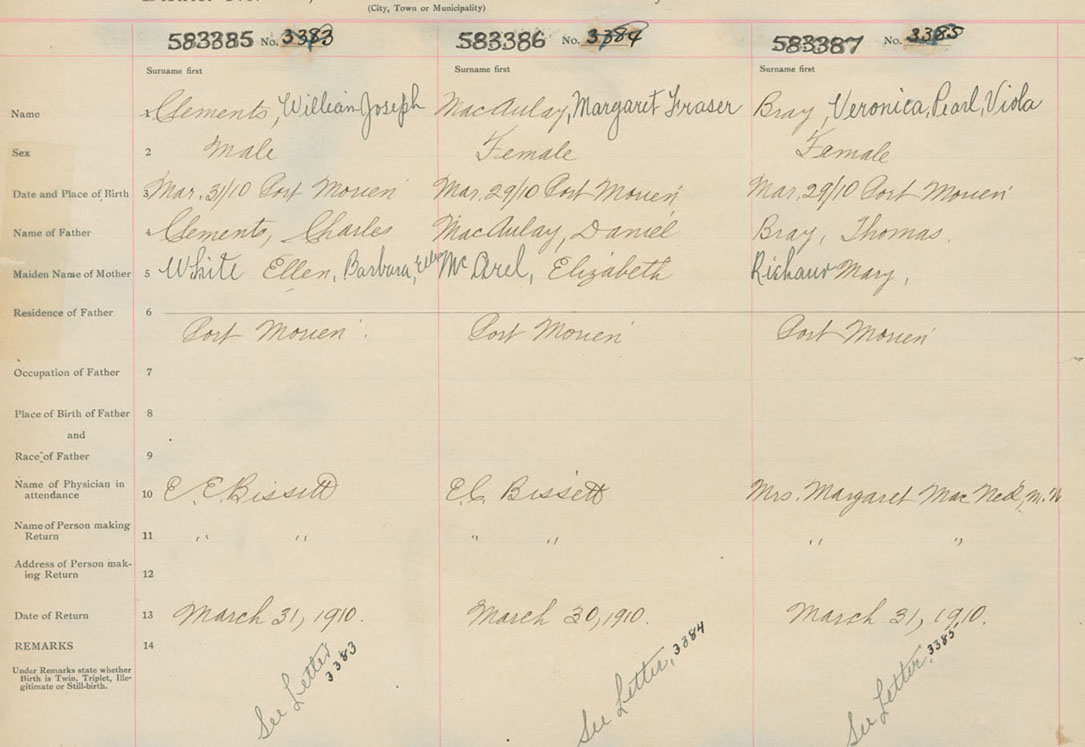 (City, Town or Municipality)
583385 No. 3383 583386 No. 3384 583387 No. 3385
Surname first Surname first Surname first
Name 1 Clements, William Joseph MacAulay, Margaret Fraser Bray, Veronica, Pearl, Viola
Sex 2 Male Female Female
Date and Place of Birth 3 Mar. 31/10 Port Morien Mar. 29/10 Port Morien Mar. 29/10 Port Morien
Name of Father 4 Clements, Charles MacAulay, Daniel Bray, Thomas.
Maiden Name of Mother 5 White Ellen, Barbara, Ellen Mc Arel, Elizabeth Mary,
Residence of Father 6
Port Morien Port Morien Port Morien
Occupation of Father 7
Place of Birth of Father 8
and
Race of Father 9
Name of Physician in
attendance 10 E. E. Bissett E.C. Bissett Mrs. Margaret Mac
Name of Person making
Return 11 " " " " " "
Address of Person mak-
ing Return 12
Date of Return 13 March 31, 1910. March 30, 1910. March 31, 1910.
REMARKS 14
Under Remarks state whether
Birth is Twin, Triplet, Ille-
gitimate or Still-birth.
See Letter 3383 See Letter, 3384 See Letter, 3385